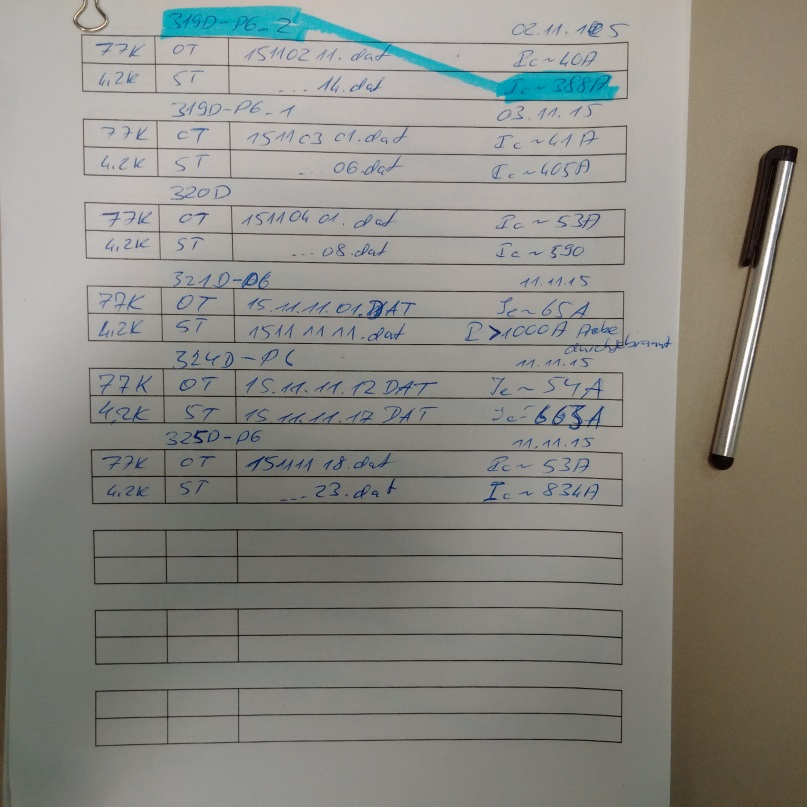 319D-P6_2 02.11.15
77K OT 15110211.dat Ic~40A
4.2K 5T ...14.dat Ic~388A
319D-P6_1 03.11.15
77K OT 15110301.dat Ic~41A
4.2K 5T ...06.dat Ic~405A
320D
77K OT 15110401.dat Ic~53A
4.2K 5T ...08.dat Ic~590
321D-P6 11.11.15
77K OT 15.11.11.01.DAT Ic~65A
4.2K 5T 15111111.dat I>1000A
durchgebrannt
324D-P6 11.11.15
77K OT 15.11.11.12 DAT Ic~54A
4.2K 5T 15.11.11.17 DAT Ic~663A
325D-P6 11.11.15
77K OT 15111118.dat Ic~53A
4.2K 5T ...23.dat Ic~834A